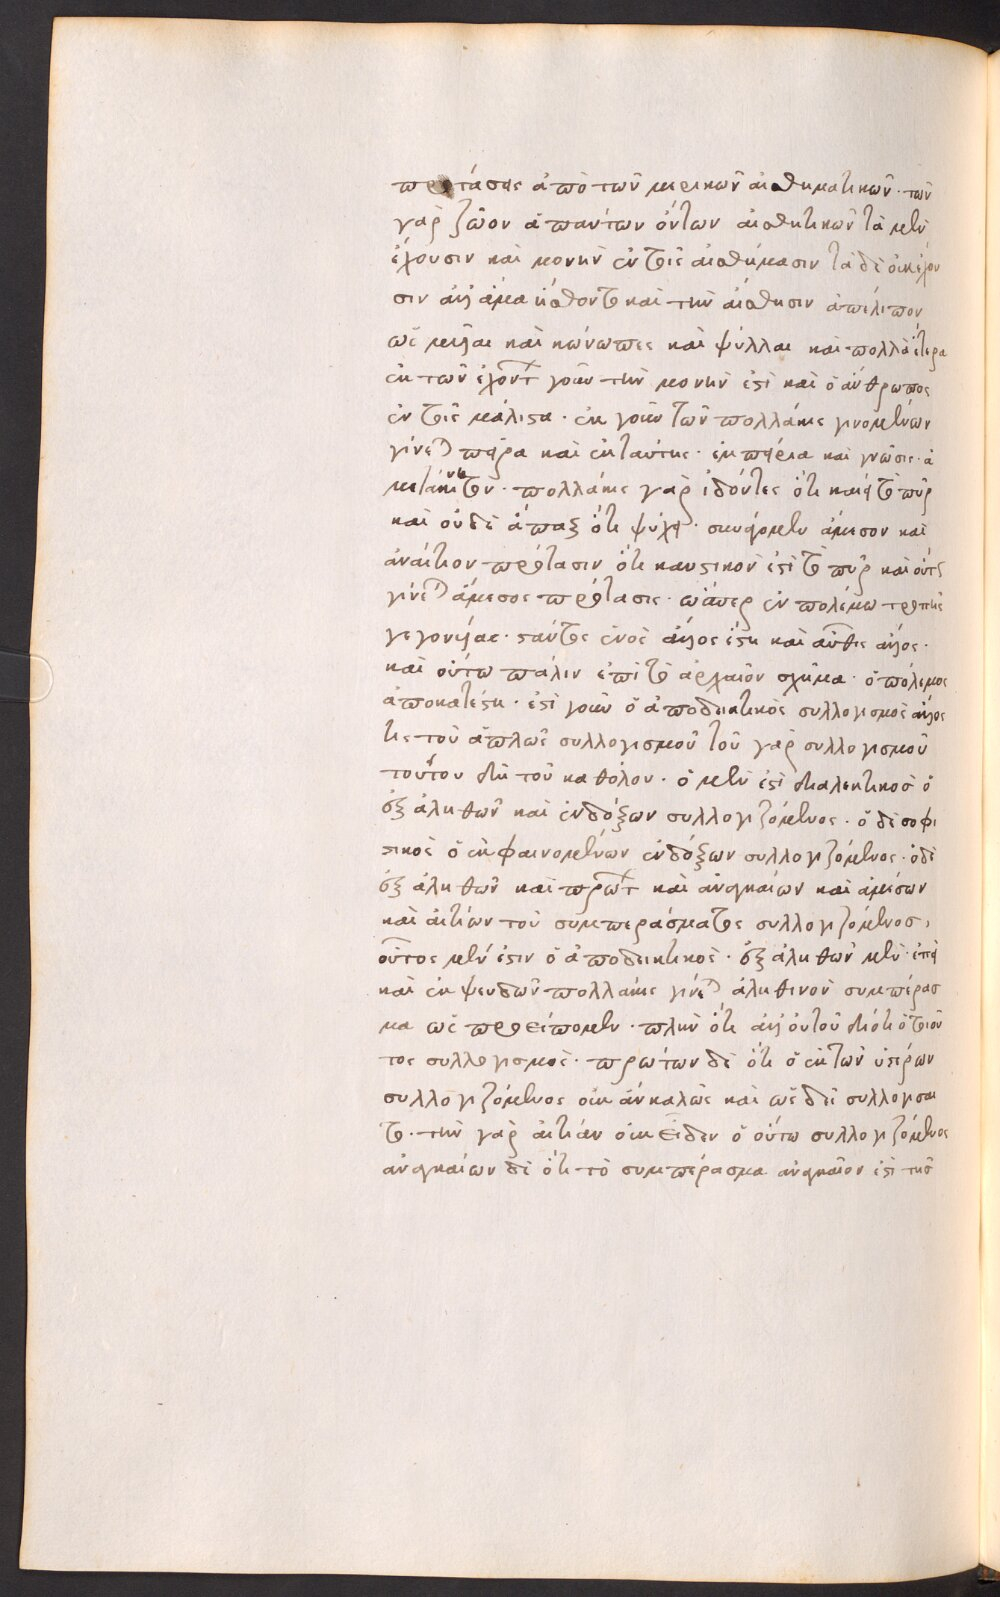 προτάσεις ἀπὸ τῶν μερικῶν αἰσθηματικῶν· τῶν
γὰρ ζῶον ἁπάντων ὄντων αἰσθητικῶν τὰ μὲν
ἔχουσιν καὶ μονὴν ἐν τοῖς αἰσθήμασιν τὰ δὲ οὐκ ἔχου
σιν ἀλλ' ἅμα ἤσθοντο καὶ τὴν αἴσθησιν ἀπέλιπον
ὡς μυῖαι καὶ κώνωπες καὶ ψύλλαι καὶ πολλὰ ἕτερα
ἐκ τῶν ἐχόντων γοῦν τὴν μονὴν ἐστὶ καὶ ὁ ἄνθρωπος
ἐν τοῖς μάλιστα· ἐκ γοῦν τῶν πολλάκις γινομένων
γίνεται πεῖρα καὶ ἐκ ταύτης· ἐμπειρία καὶ γνῶσις· ἀ
πολλάκις γὰρ ἰδόντες ὅτι καίει τὸ πῦρ
καὶ οὐδὲ ἅπαξ ὅτι ψύχει· ἄμεσον καὶ
ἀναίτιον πρότασιν ὅτι καυστικὸν ἐστὶ τὸ πῦρ καὶ οὕτω
γίνεται ἄμεσος πρότασις· ὥσπερ ἐν πολέμω τροπῆς
γεγονυίας· στάντος ἑνὸς ἄλλος ἔστη καὶ αὖθις ἄλλος·
καὶ οὕτω πάλιν ἐπὶ τὸ ἀρχαῖον σχῆμα· ὁ πόλεμος
ἀποκατέστη· ἐστὶ γοῦν ὁ ἀποδεικτικὸς συλλογισμὸς ἄλλος
τις τοῦ ἁπλῶς συλλογισμοῦ τοῦ γὰρ συλλογισμοῦ
τούτου δὴ τοῦ καθόλου· ὁ μὲν ἐστὶ διαλεκτικὸσ ὁ
ἐξ ἀληθῶν καὶ ἐνδόξων συλλογιζόμενος· ὁ δὲ σοφι
στικὸς ὁ ἐκ φαινομένων ἐνδόξων συλλογιζόμενος· ὁ δὲ
ἐξ ἀληθῶν καὶ πρώτων καὶ ἀναγκαίων καὶ ἀμέσων
καὶ αἰτίων τοῦ συμπεράσματος συλλογιζόμενοσ,
οὗτος μέν ἐστιν ὁ ἀποδεικτικὸς· ἐξ ἀληθῶν μὲν· ἐπεὶ
καὶ ἐκ ψευδῶν πολλάκις γίνεται ἀληθινὸν συμπέρασ
μα ὡς προείπομεν· πλὴν ὅτι ἀλλ' οὐ τοῦ διότι ὁ τοιοῦ
τος συλλογισμὸς· πρώτων δὲ ὅτι ὁ ἐκ τῶν ὑστέρων
συλλογιζόμενος οὐκ ἂν καλῶς καὶ ὡς δεῖ συλλογίσαι
το· τὴν γὰρ αἰτίαν οὐκ εἶδεν ὁ οὕτω συλλογιζόμενος
ἀναγκαίων δὲ ὅτι τὸ συμπέρασμα ἀναγκαῖον ἐστὶ τῆσ